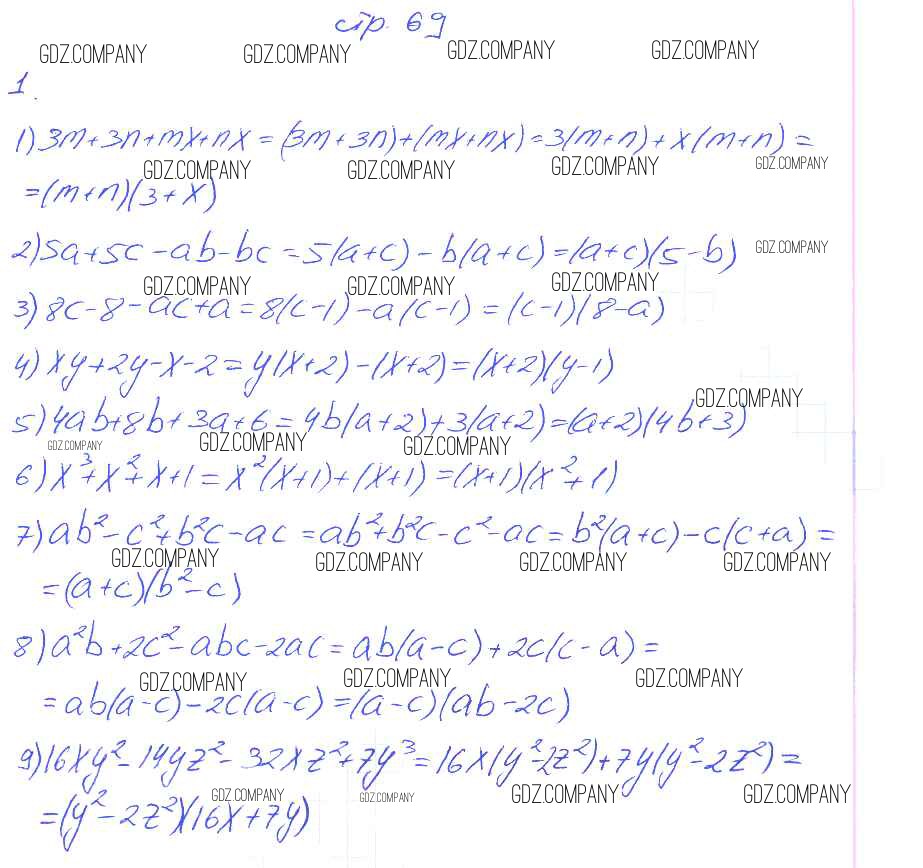 стр. 69
GDZ.COMPANY GDZ.COMPANY GDZ.COMPANY GDZ.COMPANY
1.
1) 3m+3n+mx+nx = (3m+3n)+(mx+nx)=3(m+n)+x(m+n)=
GDZ.COMPANY GDZ.COMPANY GDZ.COMPANY GDZ.COMPANY
=(m+n)(3+x)
2) 5a+5c-ab-bc=5(a+c)-b(a+c)=(a+c)(5-b) GDZ.COMPANY
GDZ.COMPANY GDZ.COMPANY GDZ.COMPANY
3) 8c-8-ac+a=8(c-1)-a(c-1)=(c-1)(8-a)
4) xy+2y-x-2=y(x+2)-(x+2)=(x+2)(y-1)
GDZ.COMPANY
5) 4ab+8b+3a+6=4b(a+2)+3(a+2)=(a+2)(4b+3)
GDZ.COMPANY GDZ.COMPANY GDZ.COMPANY
6) x³+x²+x+1=x²(x+1)+(x+1)=(x+1)(x²+1)
7) ab²-c²+b²c-ac=ab²+b²c-c²-ac=b²(a+c)-c(c+a)=
GDZ.COMPANY GDZ.COMPANY GDZ.COMPANY GDZ.COMPANY
=(a+c)(b²-c)
8) a²b+2c²-abc-2ac=ab(a-c)+2c(c-a)=
GDZ.COMPANY GDZ.COMPANY GDZ.COMPANY
=ab(a-c)-2c(a-c)=(a-c)(ab-2c)
9) 16xy²-14yz²-32xz²+7y³=16x(y²-2z²)+7y(y²-2z²)=
GDZ.COMPANY GDZ.COMPANY GDZ.COMPANY GDZ.COMPANY
=(y²-2z²)(16x+7y)